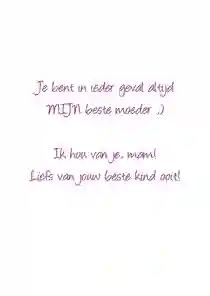 Je bent in ieder geval altijd
MIJN beste moeder ;)
Ik hou van je, mam!
Liefs van jouw beste kind ooit!